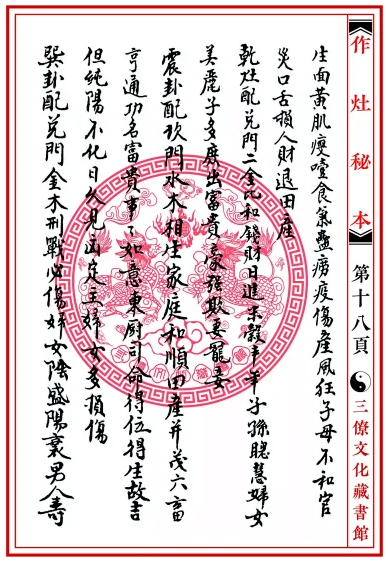 作灶秘本
第十八頁
三僚文化藏書館
生面黃肌瘦噎食氣蠱癆疫傷產風狂子母不和官
災口舌損人財退田產
乾灶配兌門二金比和錢財日進米穀豐年子孫聰慧婦女
美麗子多庶出富貴豪強欺妻寵妾
震卦配坎門水木相生家庭和順田產并茂六畜
亨通功名富貴事了如意東厨司命得位得生故吉
但純陽不化日久見凶定主婦女多損傷
巽卦配兌門金木刑戰必傷婦女陰盛陽衰男人壽